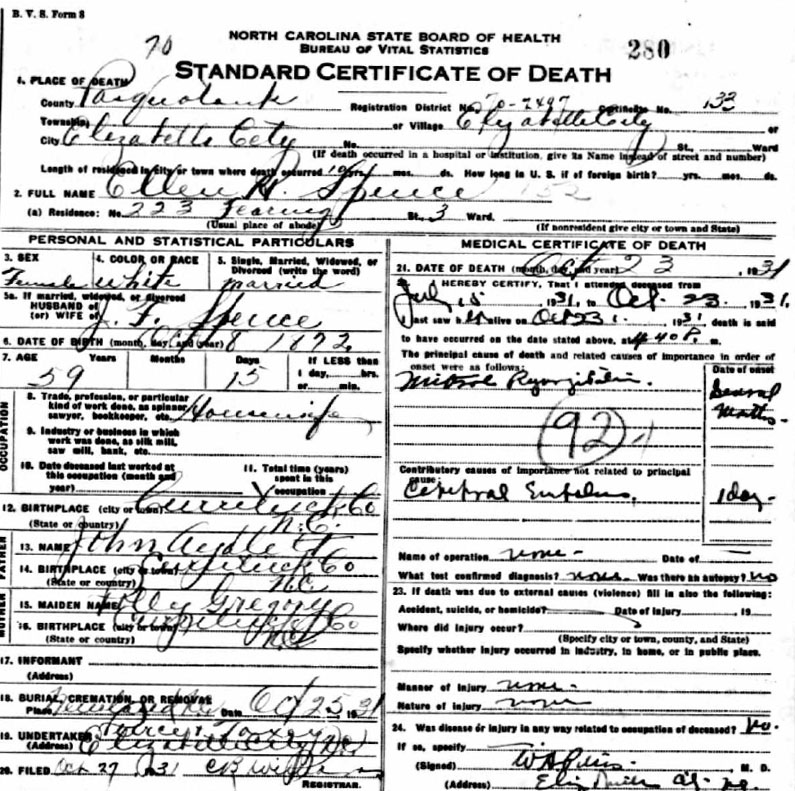 B. V. S. Form 8
70
NORTH CAROLINA STATE BOARD OF HEALTH
BUREAU OF VITAL STATISTICS
280
STANDARD CERTIFICATE OF DEATH
1. PLACE OF DEATH
County Pasquotank Registration District No. 70-7497 Certificate No. 133
Township or Village Elizabeth City or
City Elizabeth City No. St., Ward
(If death occurred in a hospital or institution, give its Name instead of street and number)
Length of residence in city or town where death occurred yrs. mos. ds. How long in U. S. if of foreign birth? yrs. mos. ds.
2. FULL NAME Ellen H. Spence 152
(a) Residence: No. 223 Fearing St., 3 Ward.
(Usual place of abode) (If nonresident give city or town and State)
PERSONAL AND STATISTICAL PARTICULARS
3. SEX 4. COLOR OR RACE 5. Single, Married, Widowed, or Divorced (write the word)
Female white married
5a. If married, widowed, or divorced
HUSBAND of
(or) WIFE of J. F. Spence
6. DATE OF BIRTH (month, day, and year) Oct 8 1872
7. AGE Years Months Days If LESS than
1 day, hrs.
59 15 or min.
OCCUPATION
8. Trade, profession, or particular
kind of work done, as spinner,
sawyer, bookkeeper, etc. Housewife
9. Industry or business in which
work was done, as silk mill,
saw mill, bank, etc.
10. Date deceased last worked at
this occupation (month and
year)
11. Total time (years)
spent in this
occupation
12. BIRTHPLACE (city or town) Currituck Co
(State or country) N.C.
FATHER
13. NAME John Aydlett
14. BIRTHPLACE (city or town) Currituck Co
(State or country) N.C.
MOTHER
15. MAIDEN NAME Gregory
16. BIRTHPLACE (city or town) Currituck Co
(State or country) N.C.
17. INFORMANT
(Address)
18. BURIAL, CREMATION, OR REMOVAL
Place Date Oct 25 1931
19. UNDERTAKER Toxey
(Address) Elizabeth City N.C.
20. FILED Oct 27 1931 C B Williams
REGISTRAR.
MEDICAL CERTIFICATE OF DEATH
21. DATE OF DEATH (month, day, and year) Oct 23 1931
I HEREBY CERTIFY, That I attended deceased from
July 15 1931, to Oct. 23, 1931.
I last saw h alive on Oct 23, 1931 death is said
to have occurred on the date stated above, at 4:40 P. m.
The principal cause of death and related causes of importance in order of
onset were as follows: Date of onset
Mitral Regurgitation. Several
Months.
(92)
Contributory causes of importance not related to principal
cause:
Cerebral Embolus. 1 day.
Name of operation none Date of
What test confirmed diagnosis? none. Was there an autopsy? No
23. If death was due to external causes (violence) fill in also the following:
Accident, suicide, or homicide? Date of injury , 19
Where did injury occur?
(Specify city or town, county, and State)
Specify whether injury occurred in industry, in home, or in public place.
Manner of injury none.
Nature of injury none
24. Was disease or injury in any way related to occupation of deceased? No.
If so, specify
(Signed) M. D.
(Address)